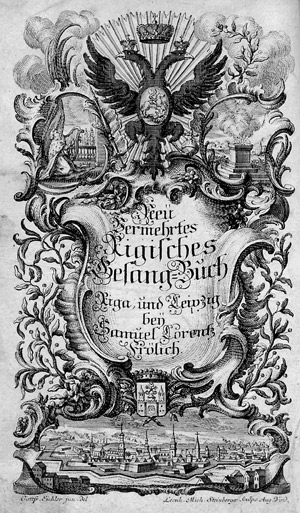 Neu
Vermehrtes
Rigisches
Gesang=Buch
Riga, und Leipzig
bey
Samuel Lorentz
Frölich.
Gottfr. Eichler jun. del.
Leonh. Mich. Steinberger Sculps. Aug. Vind.